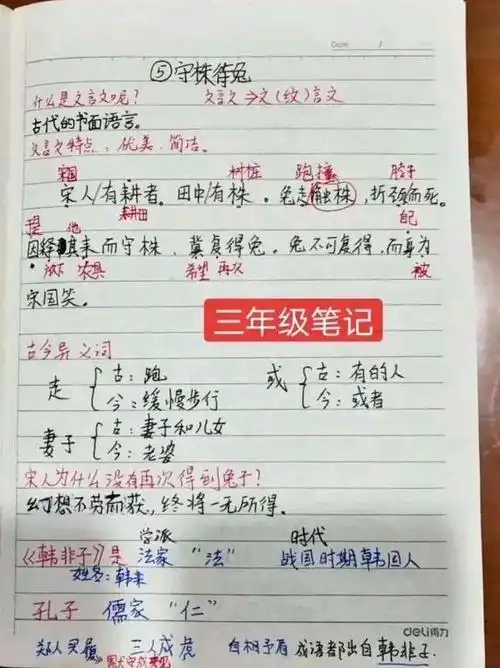 Date: /
⑤守株待兔
什么是文言文呢? 文言文→文(纹)言文
古代的书面语言。
文言文特点: 优美、简洁。
宋国 树桩 跑 撞 脖子
宋人/有耕者。田中/有株。兔走触株,折颈而死。
耕田
他 自己
因释其耒而守株,冀复得兔。兔不可复得,而身为
放下 农具 希望 再次 被
宋国笑。
三年级笔记
古今异义词
走 古:跑 今:缓慢步行
或 古:有的人 今:或者
妻子 古:妻子和儿女 今:老婆
宋人为什么没有再次得到兔子?
幻想不劳而获,终将一无所得。
学派 时代
《韩非子》是 法家 "法" 战国时期韩国人
姓名:韩非
孔子 儒家 "仁"
deli得力
郑人买履 三人成虎 自相矛盾 成语都出自韩非子.